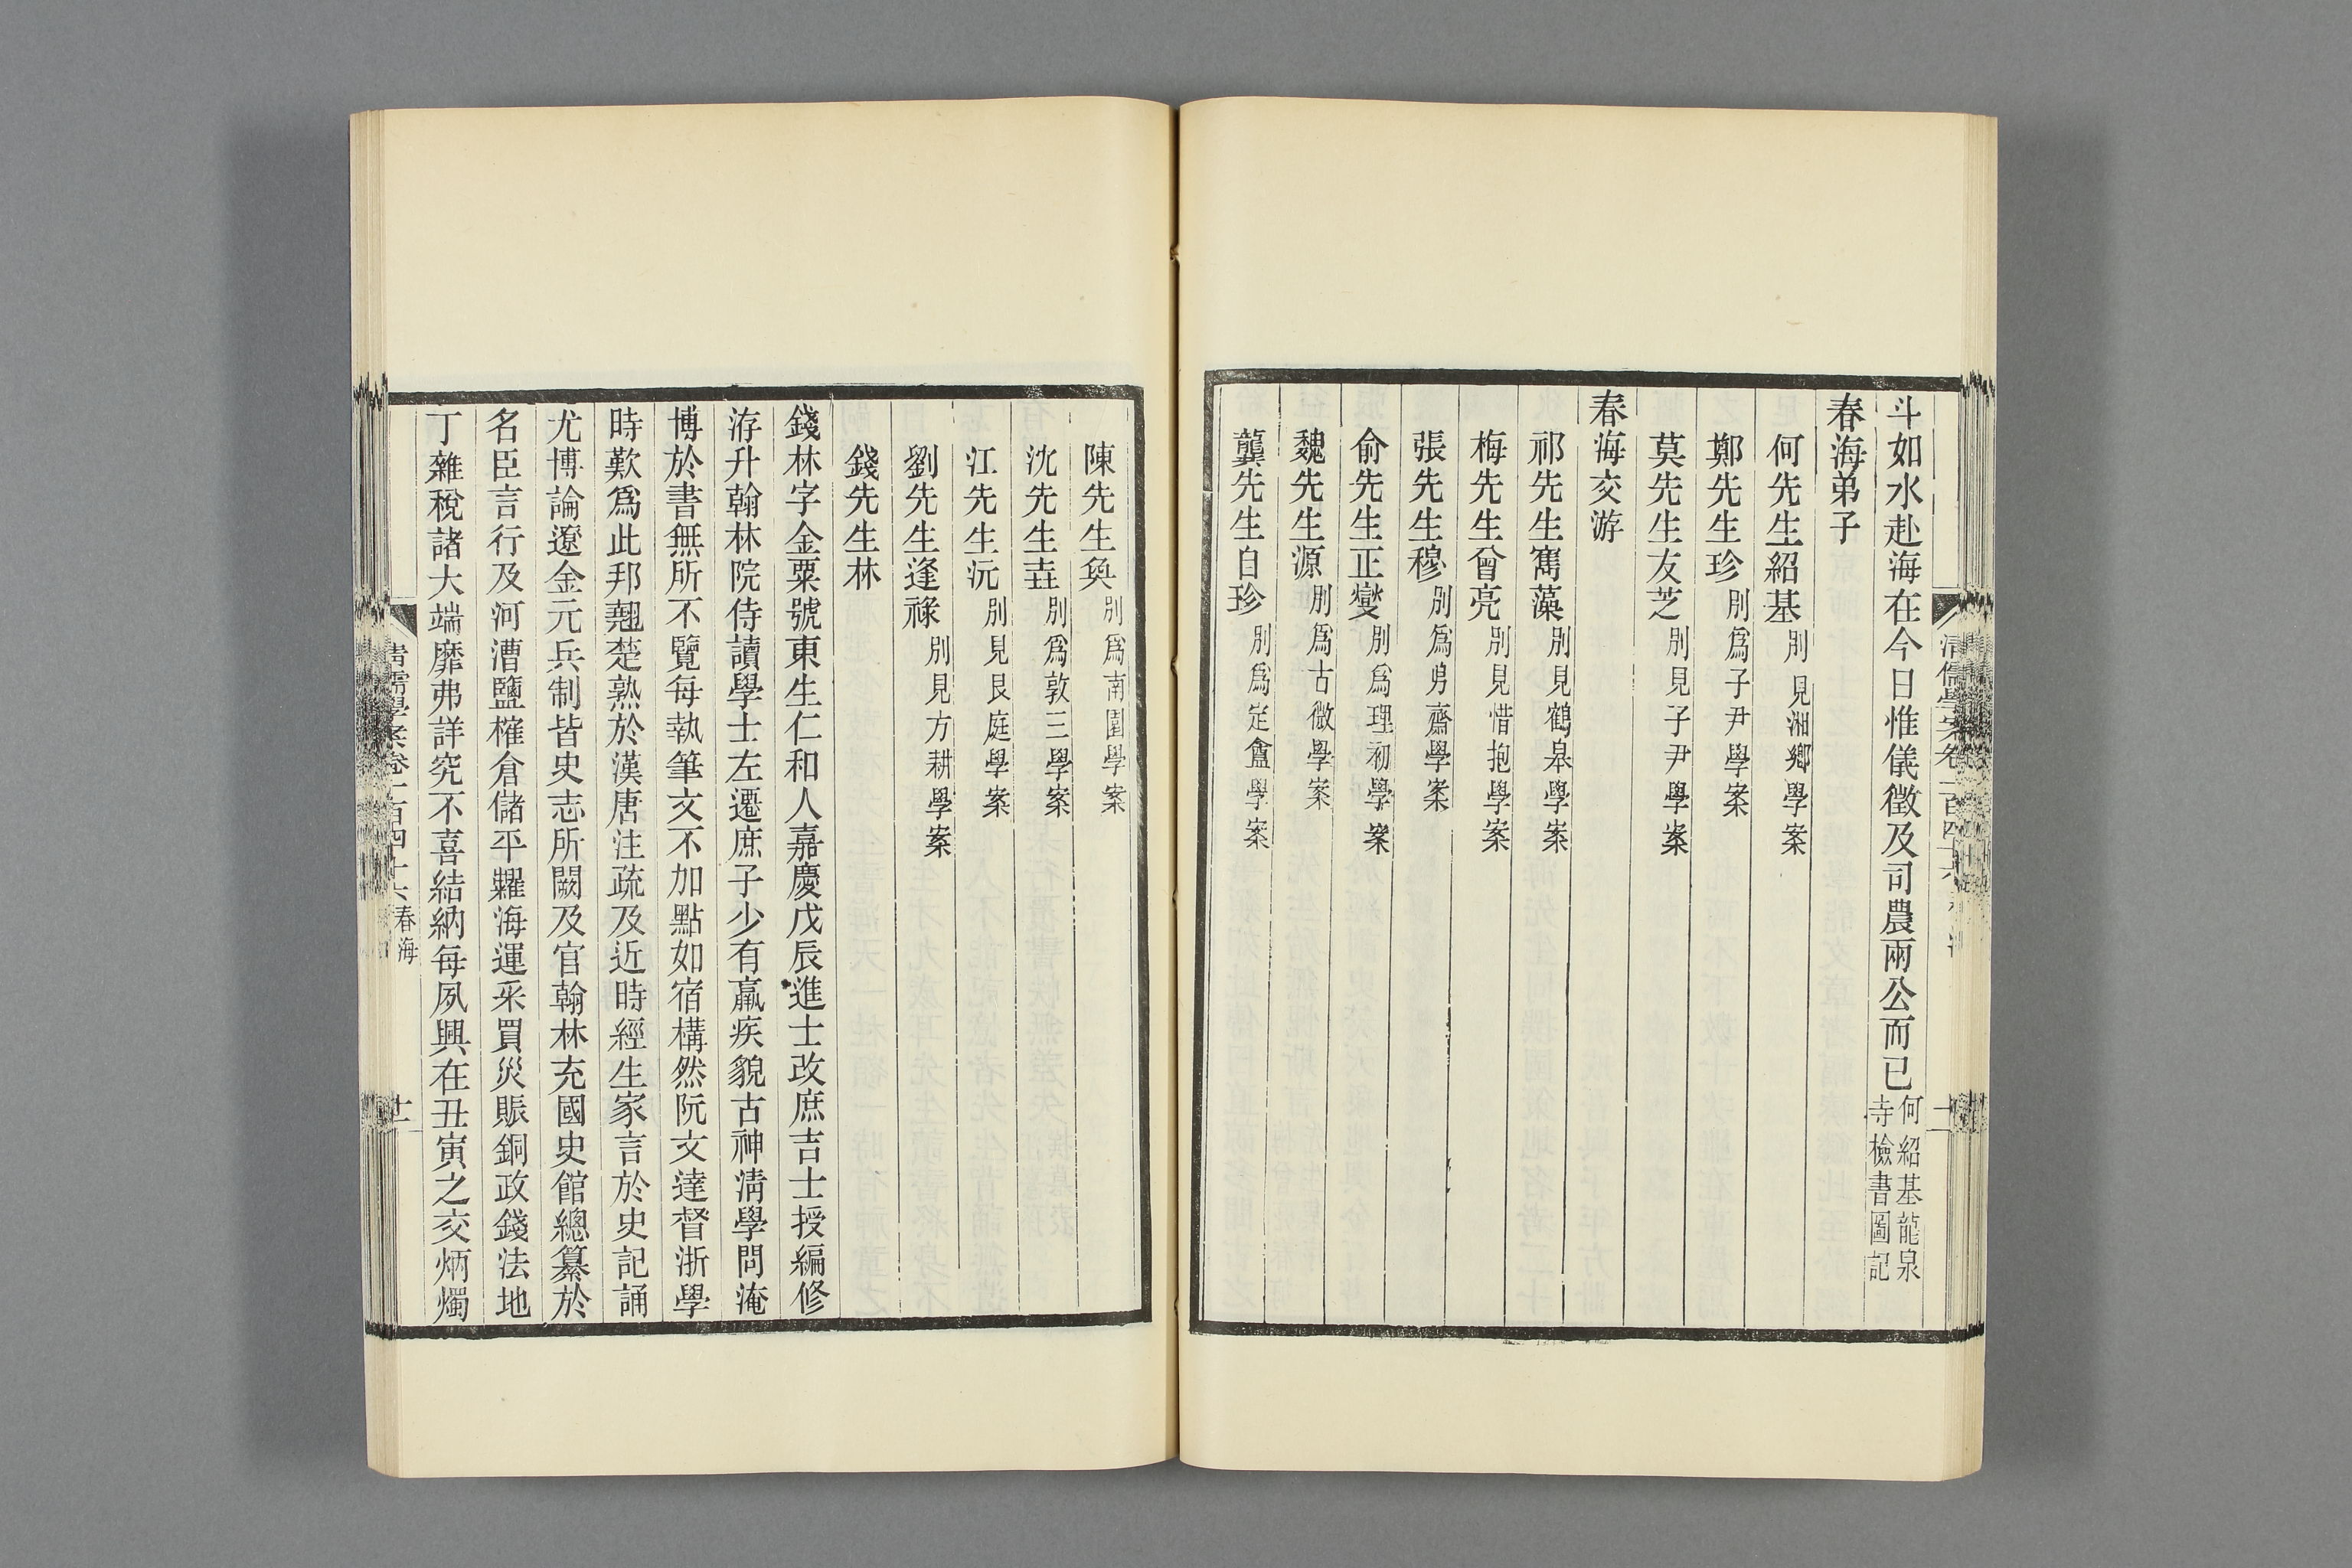 斗如水赴海在今日惟儀徵及司農兩公而已何紹基龍泉寺檢書圖記
春海弟子
何先生紹基別見湘鄉學案
鄭先生珍別爲子尹學案
莫先生友芝別見子尹學案
春海交游
祁先生寯藻別見鶴皋學案
梅先生曾亮別見惜抱學案
張先生穆別爲㐆齋學案
俞先生正燮別爲理初學案
魏先生源別爲古微學案
龔先生自珍別爲定盦學案
陳先生奐別爲南園學案
沈先生垚別爲敦三學案
江先生沅別見艮庭學案
劉先生逢祿別見方耕學案
錢先生林
錢林字金粟號東生仁和人嘉慶戊辰進士改庶吉士授編修
洊升翰林院侍讀學士左遷庶子少有羸疾貌古神淸學問淹
博於書無所不覽每執筆文不加點如宿構然阮文達督浙學
時歎爲此邦翹楚熟於漢唐注疏及近時經生家言於史記誦
尤博論遼金元兵制皆史志所闕及官翰林充國史館總纂於
名臣言行及河漕鹽榷倉儲平糶海運采買災賑銅政錢法地
丁雜稅諸大端靡弗詳究不喜結納每夙興在丑寅之交炳燭
清儒學案卷一百四十六 春海